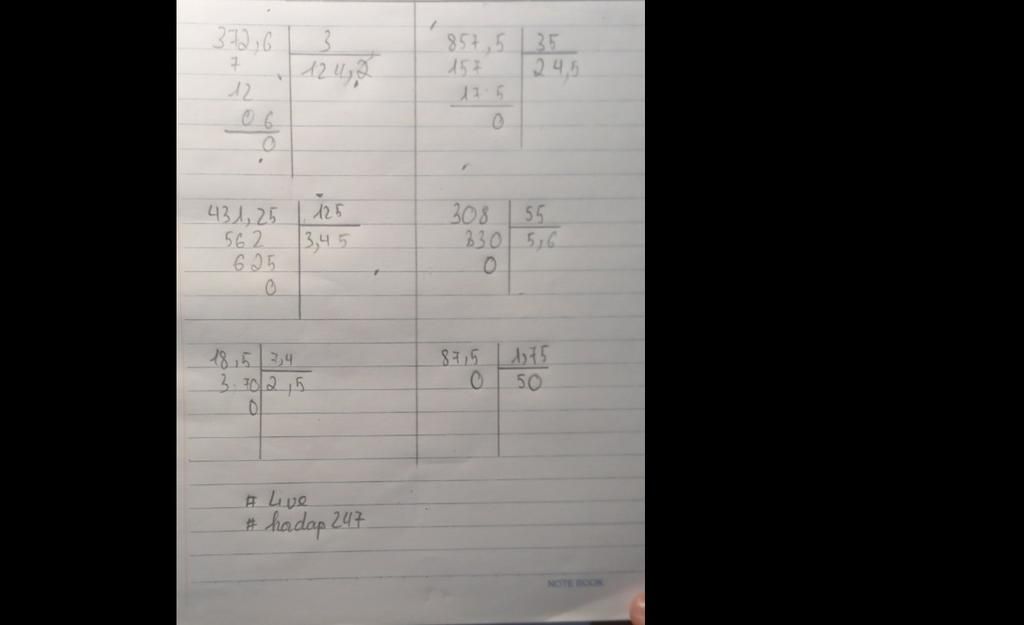 372,6 3
7 124,2
12
06
0
857,5 35
157 24,5
17 5
0
431,25 125
562 3,45
625
0
308 55
330 5,6
0
18,5 7,4
3 70 2,5
0
87,5 1,75
0 50
# Live
# hadap247
NOTE BOOK